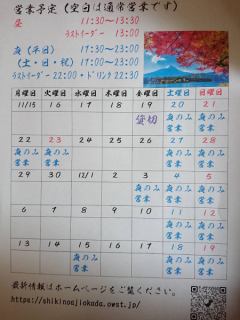 営業予定(空白は通常営業です)
昼 11:30~13:30
ラストオーダー 13:00
夜(平日) 17:30~23:00
(土・日・祝) 17:00~23:00
ラストオーダー 22:00・ドリンク 22:30
月曜日 火曜日 水曜日 木曜日 金曜日 土曜日 日曜日
11/15 16 17 18 19 20 21
貸切 夜のみ営業 夜のみ営業
22 23 24 25 26 27 28
夜のみ営業 夜のみ営業 夜のみ営業 夜のみ営業
29 30 12/1 2 3 4 5
夜のみ営業 夜のみ営業
6 7 8 9 10 11 12
夜のみ営業 夜のみ営業
13 14 15 16 17 18 19
夜のみ営業 夜のみ営業 夜のみ営業
最新情報はホームページをご覧ください。
https://shikinoajiokada.owst.jp/